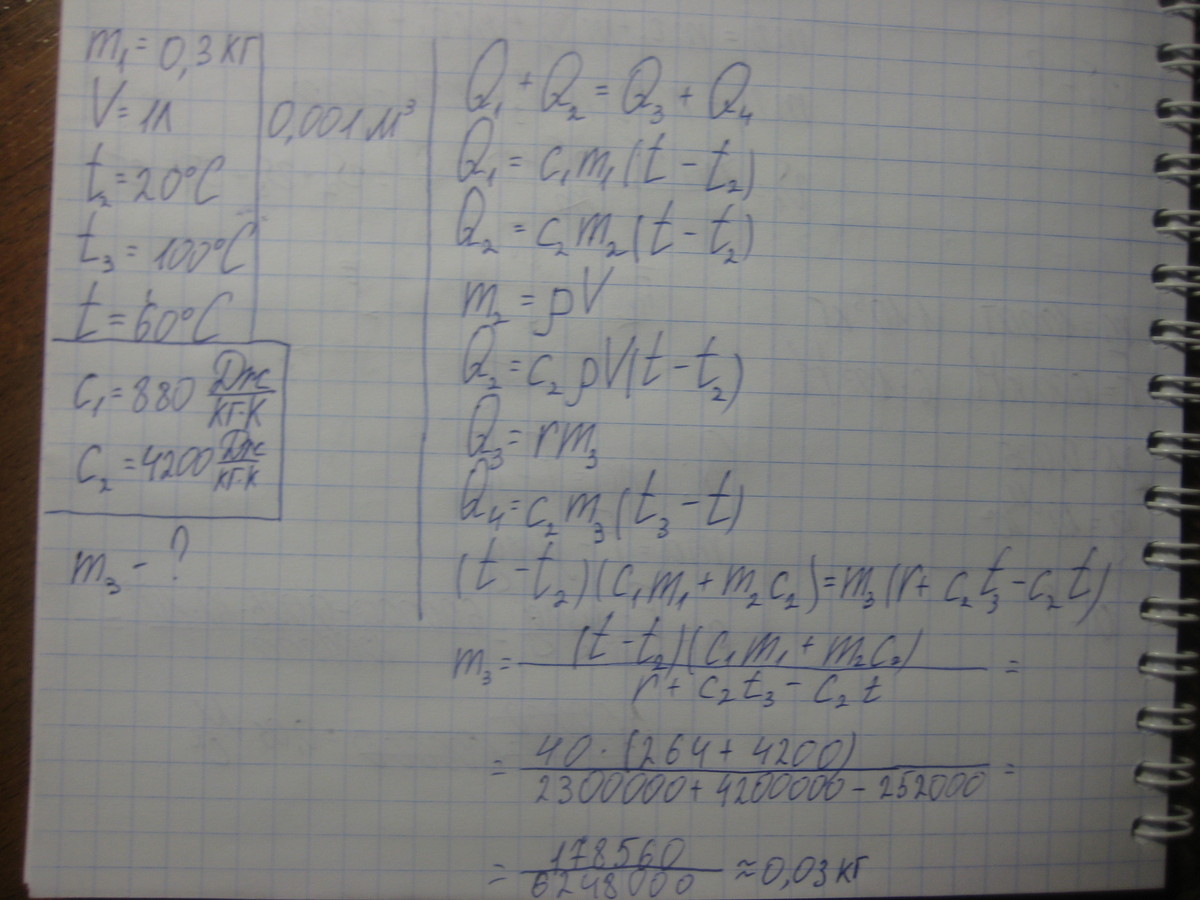 m₁ = 0,3 кг
V = 1л 0,001 м³
t₂ = 20°C
t₃ = 100°C
t = 60°C
c₁ = 880 Дж/кг·К
c₂ = 4200 Дж/кг·К
m₃ - ?
Q₁ + Q₂ = Q₃ + Q₄
Q₁ = c₁m₁(t - t₂)
Q₂ = c₂m₂(t - t₂)
m₂ = ρV
Q₂ = c₂ρV(t - t₂)
Q₃ = rm₃
Q₄ = c₂m₃(t₃ - t)
(t - t₂)(c₁m₁ + m₂c₂) = m₃(r + c₂t₃ - c₂t)
m₃ = (t - t₂)(c₁m₁ + m₂c₂) / r + c₂t₃ - c₂t =
= 40·(264 + 4200) / 2300000 + 4200000 - 252000 =
= 178560 / 6248000 ≈ 0,03 кг